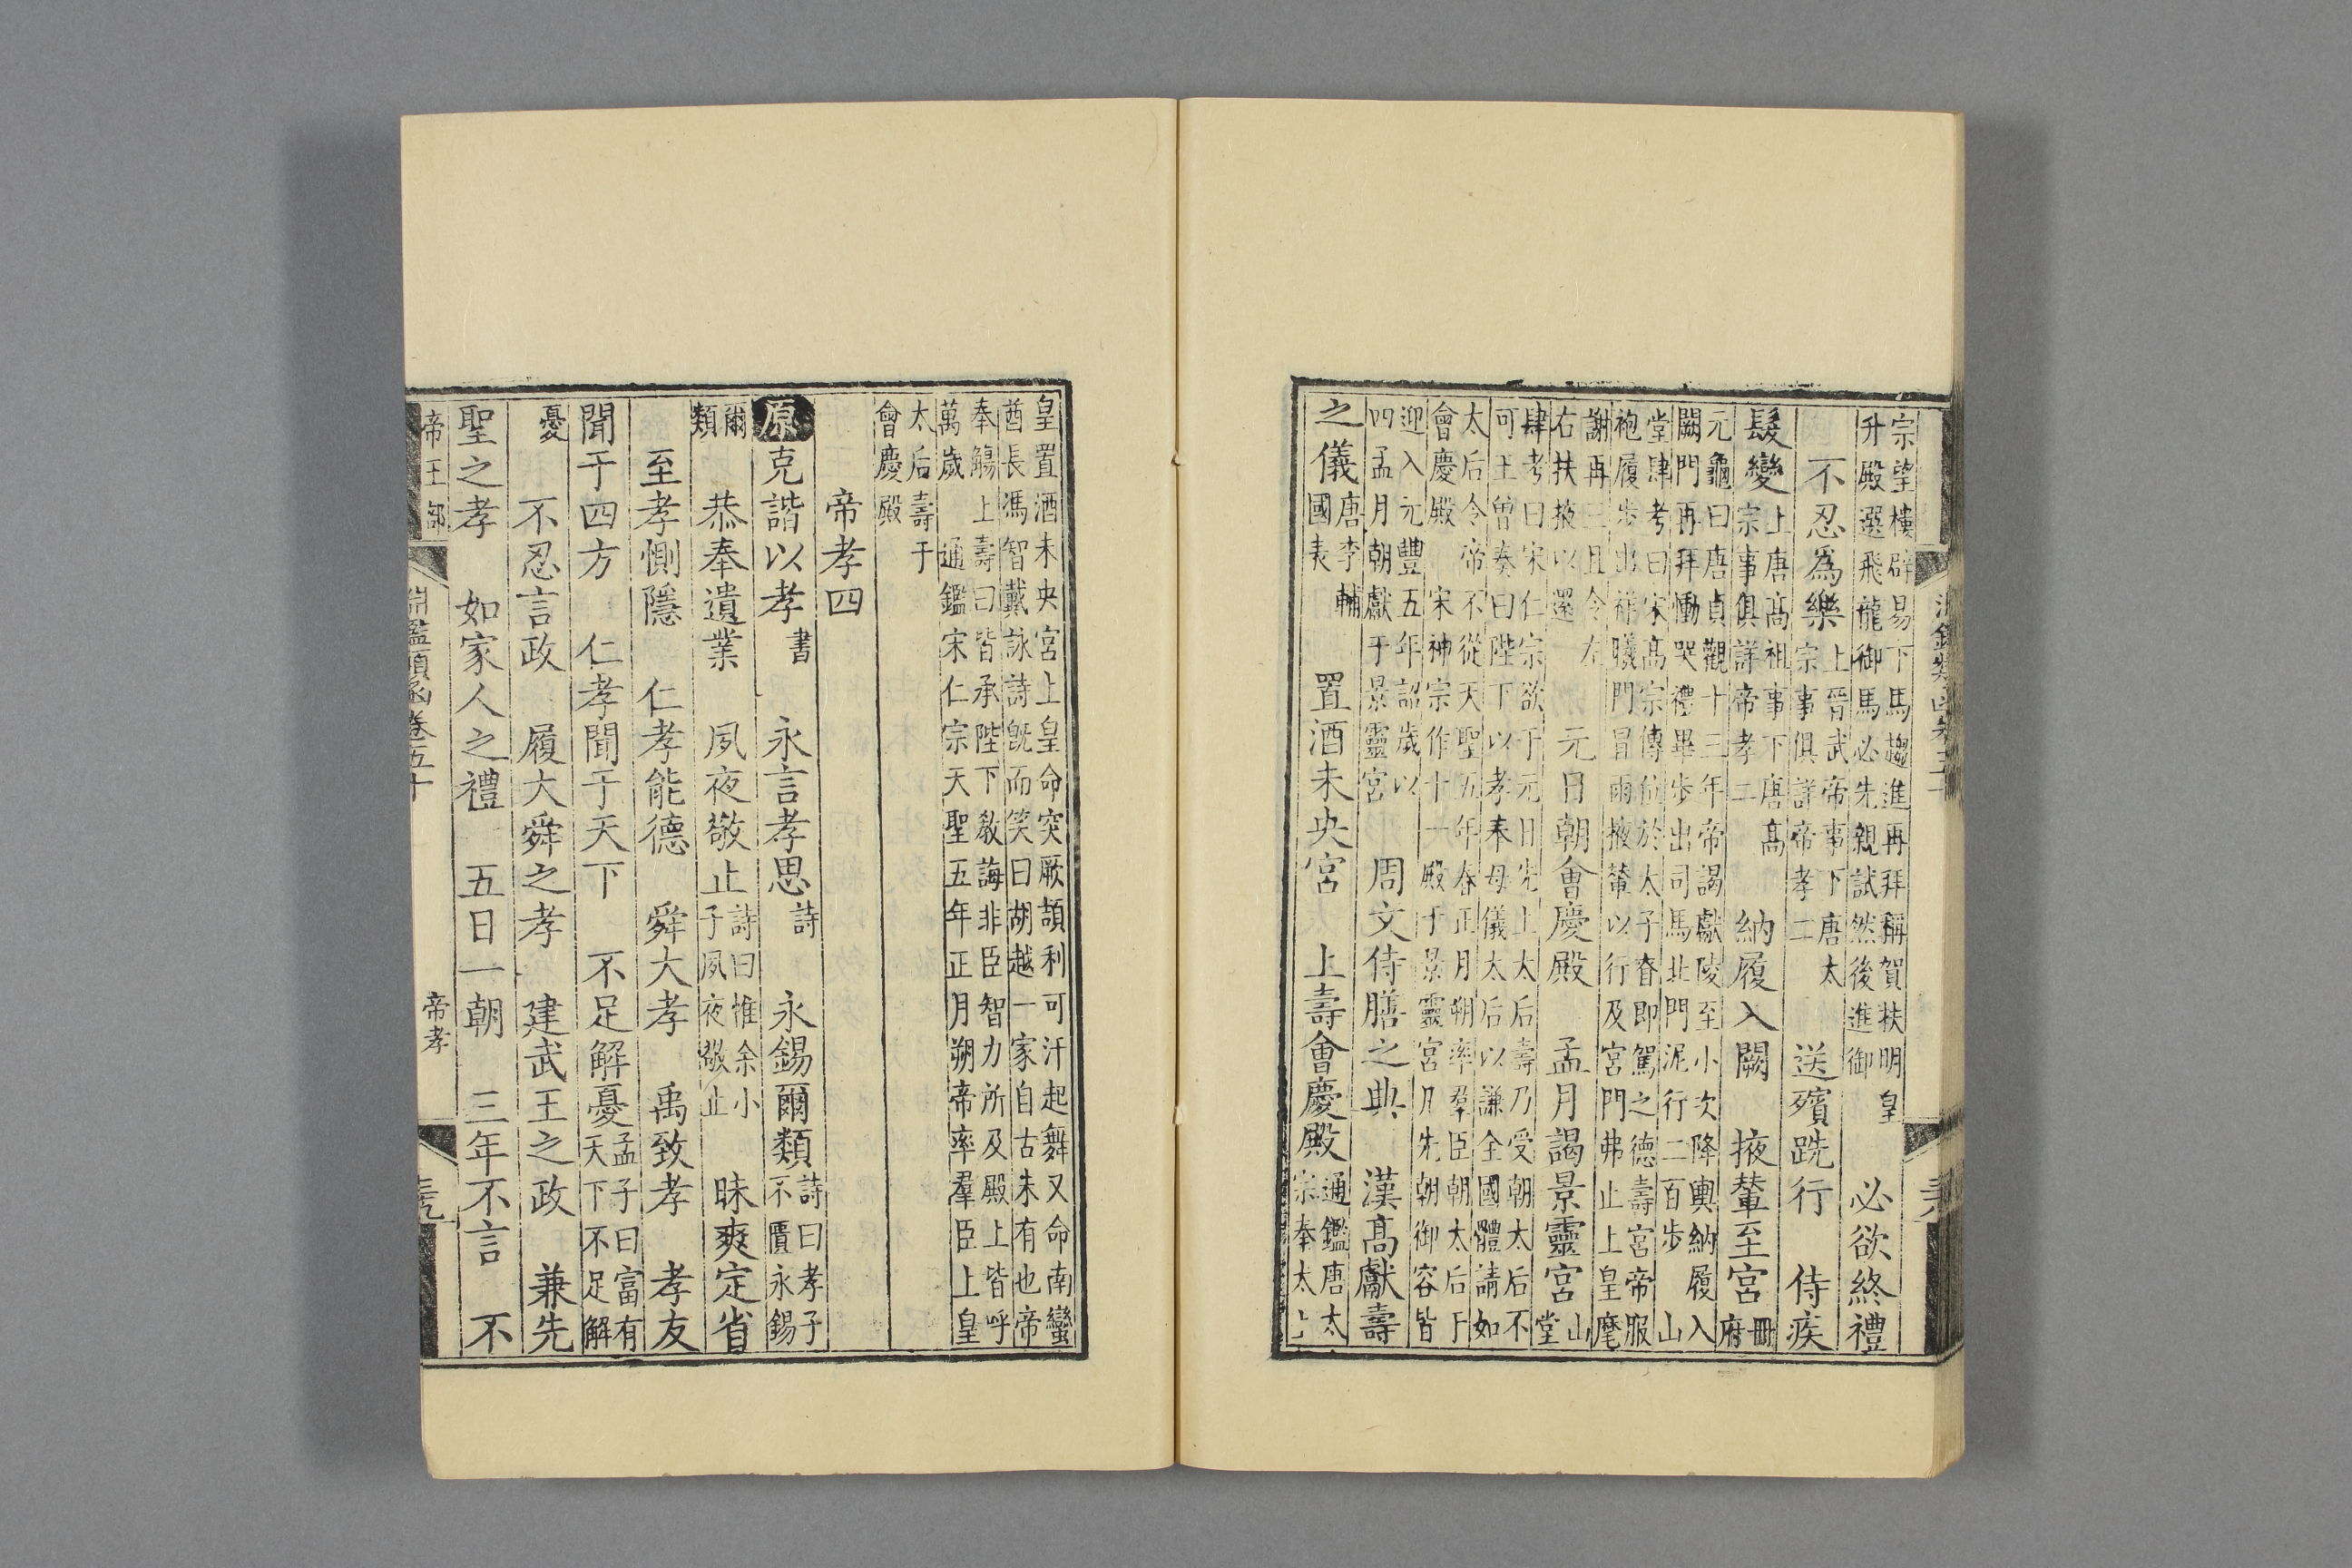 淵鑑類函卷五十
宗望樓辟易下馬趨進再拜稱賀扶明皇升殿選飛龍御馬必先親試然後進御 必欲終禮
不忍為樂上晉武帝事下唐太宗事俱詳帝孝二 送殯跣行 侍疾
髮變上唐高祖事下唐高宗事俱詳帝孝二 納履入闕 掖輦至宮冊府
元龜曰唐貞觀十三年帝謁獻陵至小次降輿納履入闕門再拜慟哭禮畢步出司馬北門泥行二百步 山
堂肆考曰宋高宗傳位於太子眘即駕之德壽宮帝服袍履步出祥曦門冒雨掖輦以行及宮門弗止上皇麾
謝再三且令左右扶掖以還 元日朝會慶殿 孟月謁景靈宮山堂
肆考曰宋仁宗欲于元日先上太后壽乃受朝太后不可王曾奏曰陛下以孝奉母儀太后以謙全國體請如
太后令帝不從天聖五年春正月朔率羣臣朝太后于會慶殿 宋神宗作十一殿于景靈宮凡先朝御容皆
迎入元豐五年詔歲以四孟月朝獻于景靈宮 周文侍膳之典 漢高獻壽
之儀唐李輔國表 置酒未央宮 上壽會慶殿通鑑唐太宗奉太上
皇置酒未央宮上皇命突厥頡利可汗起舞又命南蠻酋長馮智戴詠詩旣而笑曰胡越一家自古未有也帝
奉觴上壽曰皆承陛下敎誨非臣智力所及殿上皆呼萬歲 通鑑宋仁宗天聖五年正月朔帝率羣臣上皇
太后壽于會慶殿
帝孝四
原克諧以孝書 永言孝思詩 永錫爾類詩曰孝子不匱永錫
爾類 恭奉遺業 夙夜敬止詩曰惟余小子夙夜敬止 昧爽定省
至孝惻隱 仁孝能德 舜大孝 禹致孝 孝友
聞于四方 仁孝聞于天下 不足解憂孟子曰富有天下不足解
憂 不忍言政 履大舜之孝 建武王之政 兼先
聖之孝 如家人之禮 五日一朝 三年不言 不
帝王部 淵鑑類函卷五十 帝孝